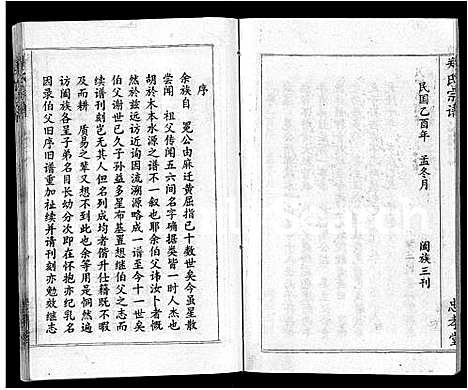 鄭氏宗譜
民国乙酉年 孟冬月
闔族三刊
忠孝堂
序
余族自 冕公由麻迁黄屈指已十数世矣今虽星散
尝闻 祖父传闻五六间名字确据类皆一时人杰也
胡於木本水源之谱不一叙也耶余伯父讳汝卜者慨
然於兹远访近询因流溯源略成一谱至今十一世矣
伯父谢世已久子孙益多星布基置想继伯父之志而
续谱刊刻岂无其人但名列成均者偕升仕籍不暇
及而耕 质易之辈又想不到此也余等用是惘然遍
访阖族各呈子弟名目长幼分次即在怀抱亦纪乳名
因录伯父旧序旧谱重加祉续并请刊刻亦勉效继志